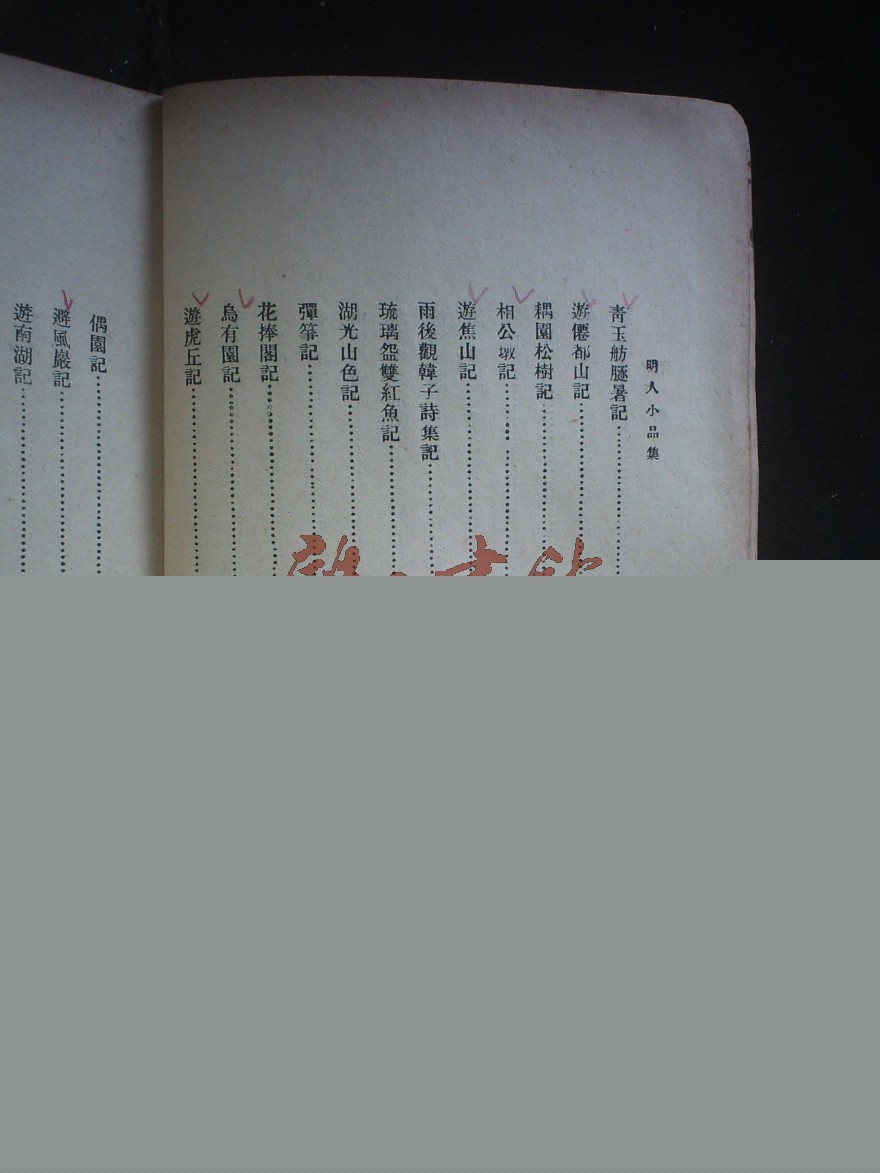 明人小品集
青玉舫豚暑記
遊僊都山記
耦園松樹記
相公墩記
遊焦山記
雨後觀韓子詩集記
琉璃盌雙紅魚記
湖光山色記
彈箏記
花捧閣記
烏有園記
遊虎丘記
偶園記
避風巖記
遊南湖記